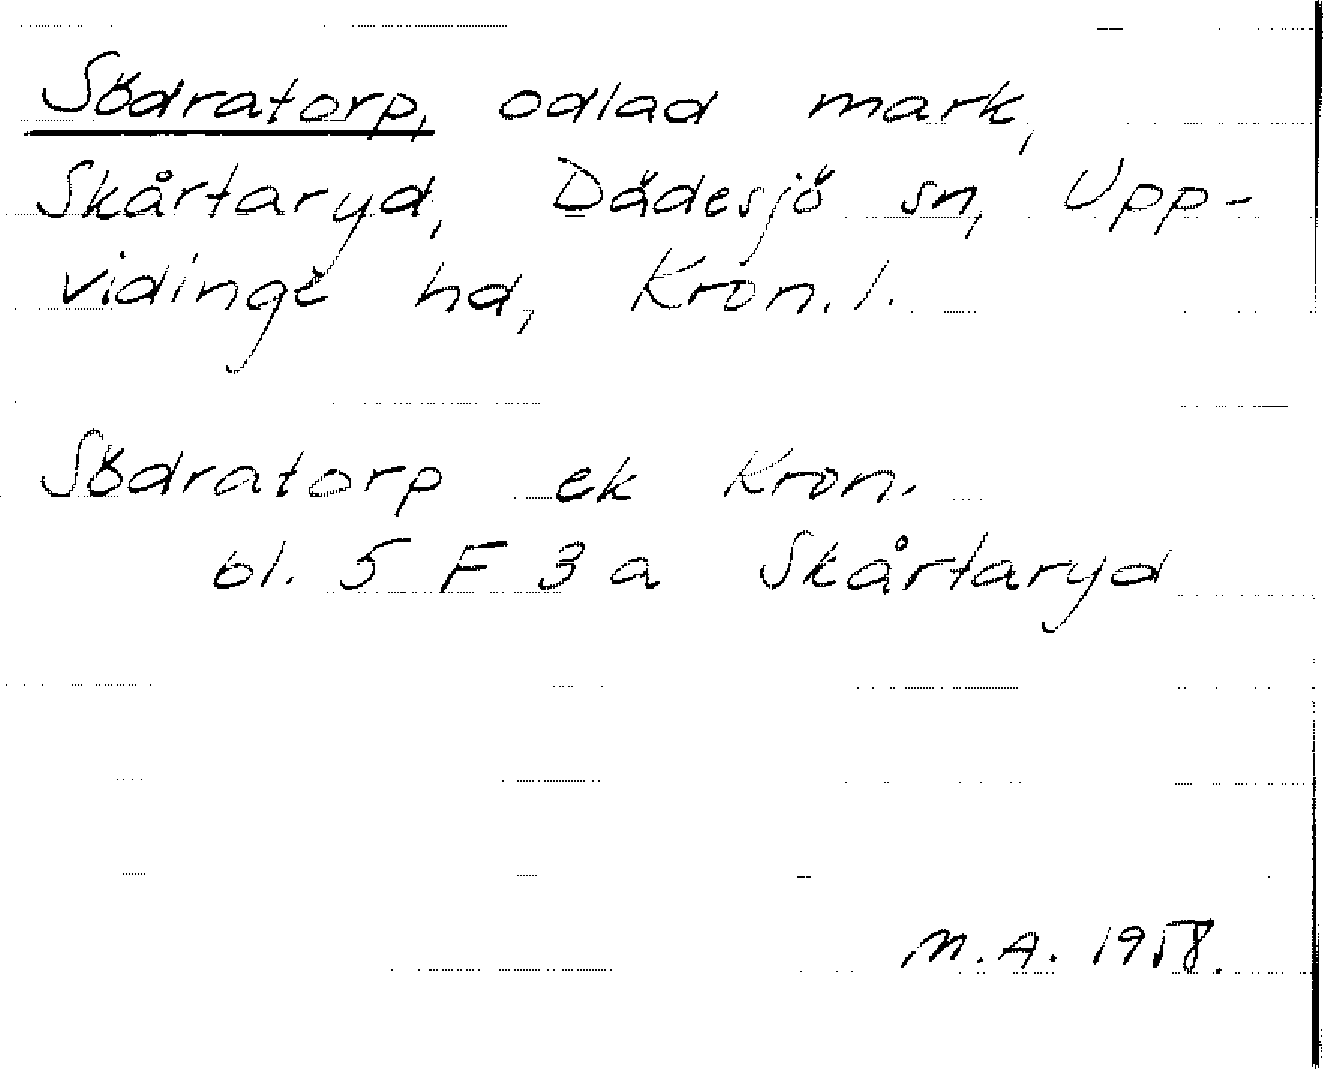 Södratorp, odlad mark,
Skårtaryd, Dädesjö sn, Upp-
vidinge hd, Kron. l.
Södratorp ek Kron.
bl. 5 F 3 a Skårtaryd
M.A. 1958.